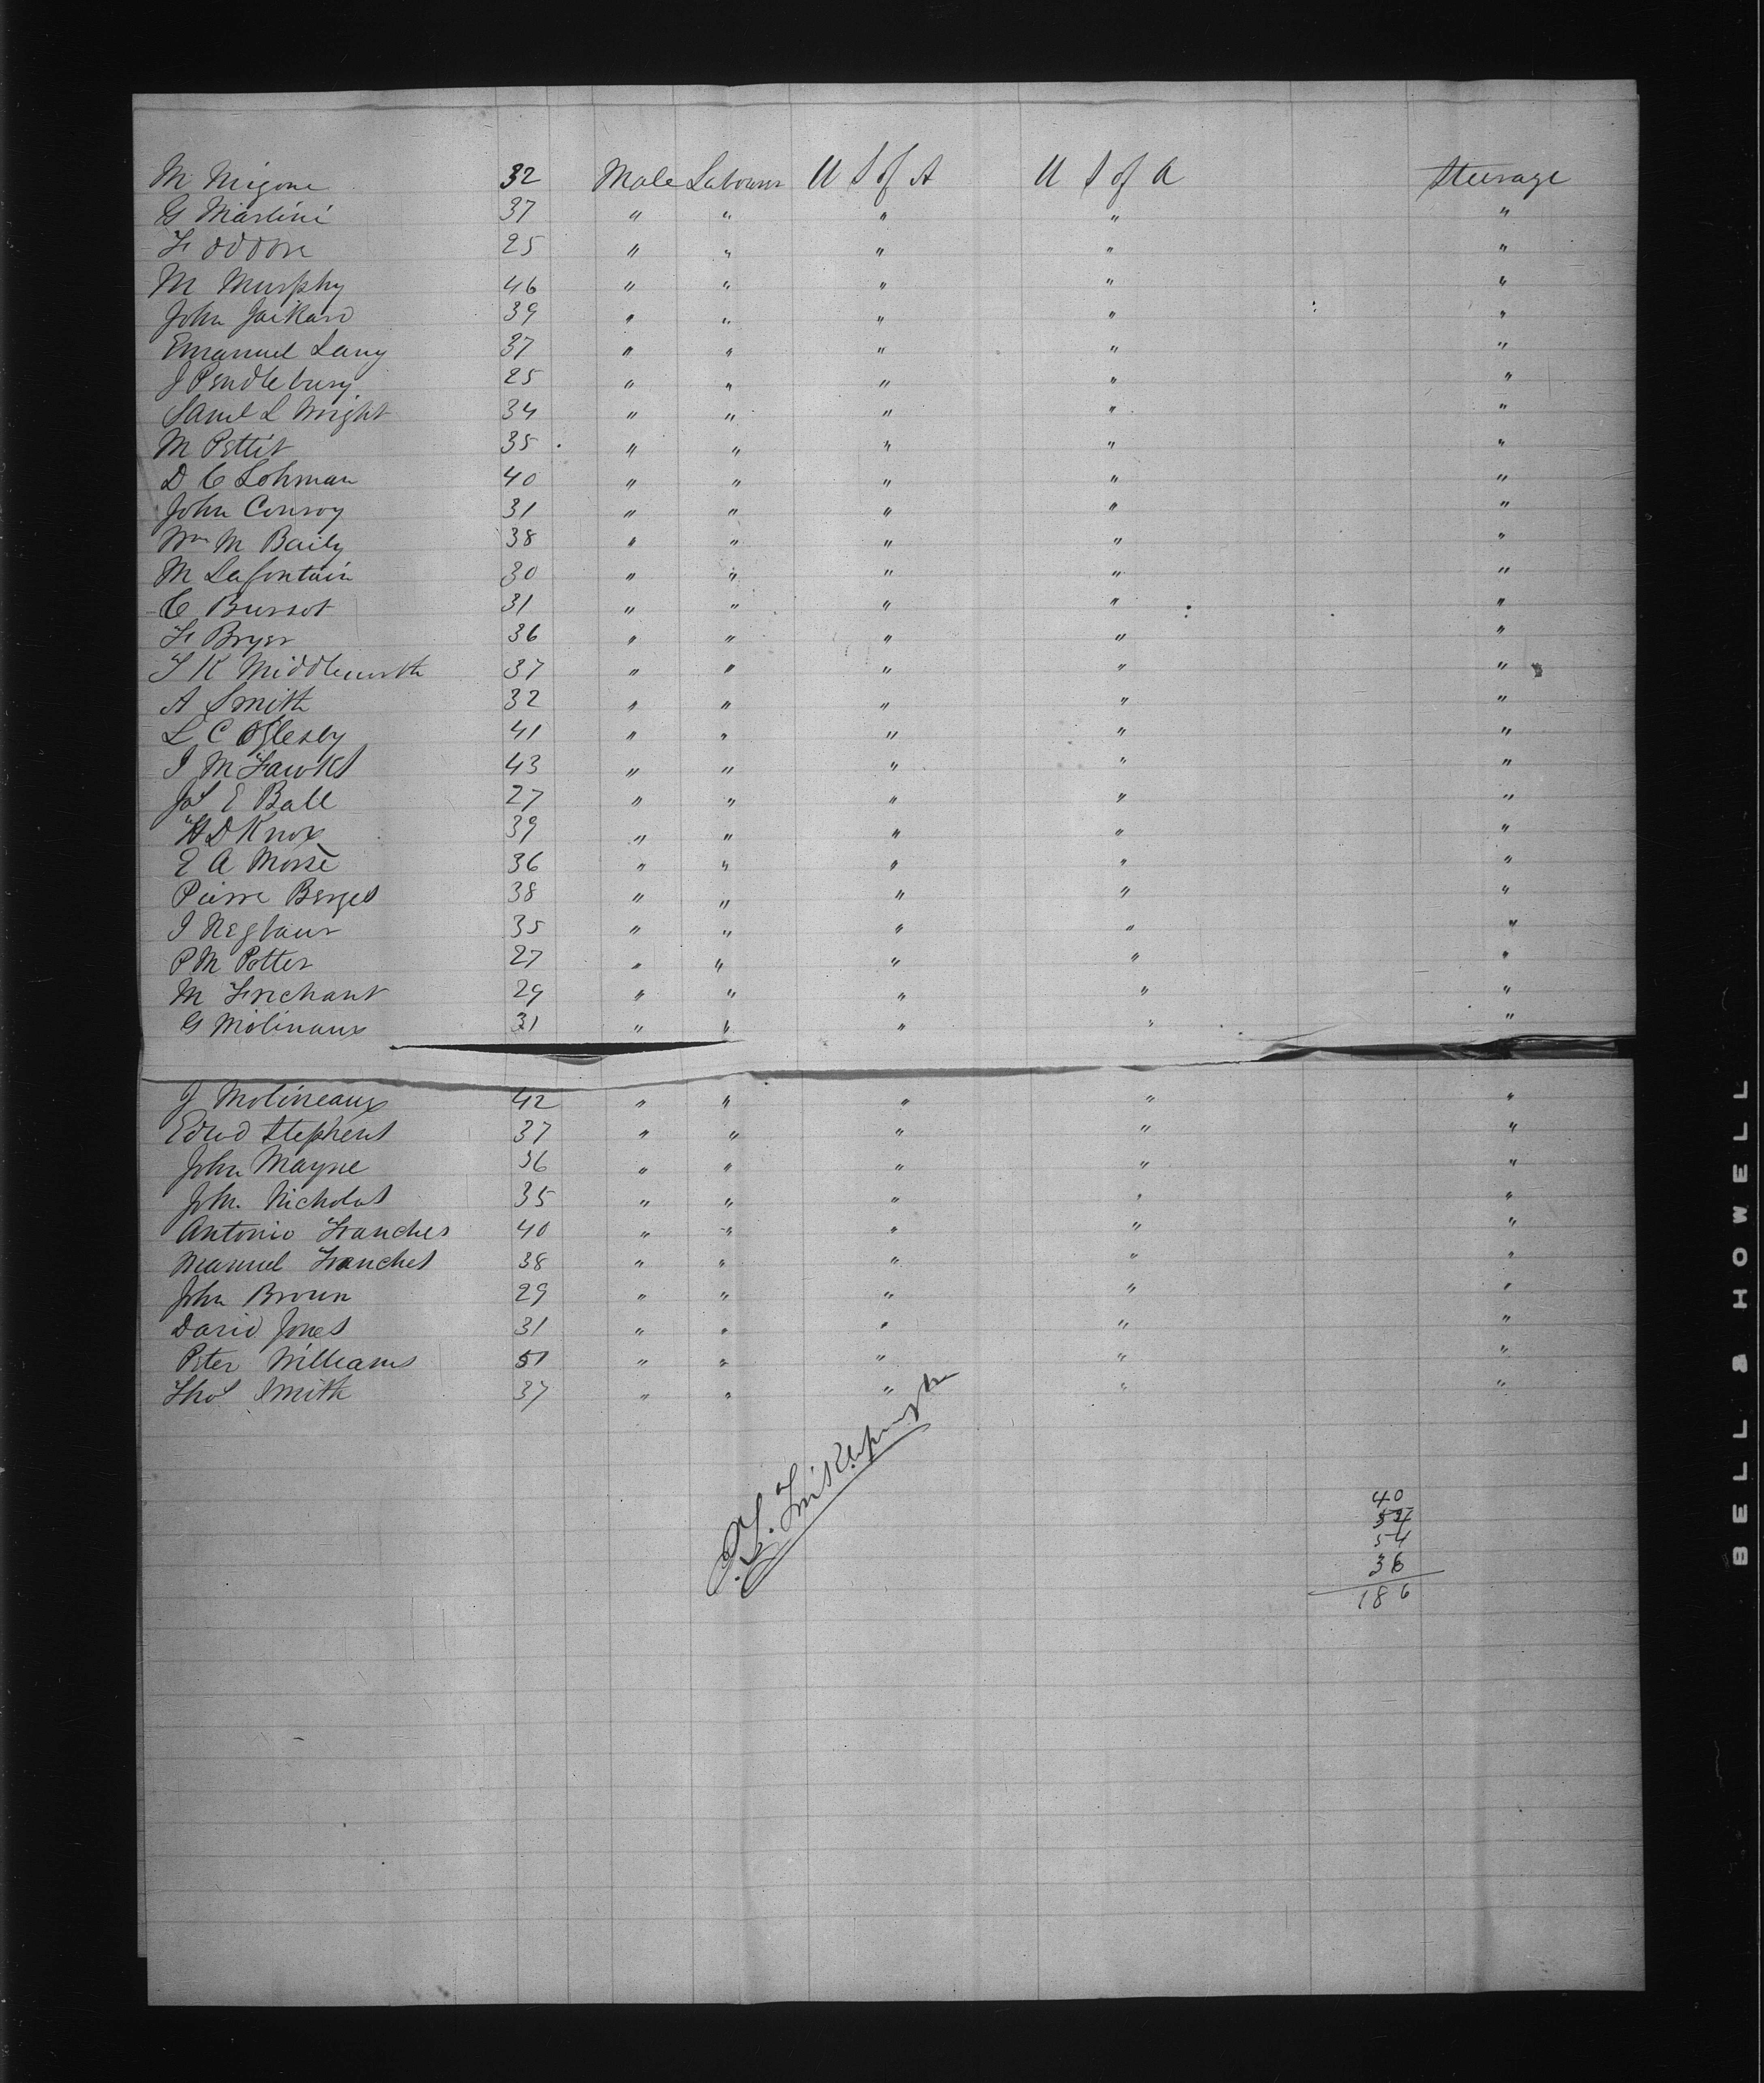 M Migone 32 Male Labourer U S of A U S of A Steerage
G Martini 37 " " " " "
F Oddone 25 " " " " "
M Murphy 46 " " " " "
John Jackard 39 " " " " "
Emanuel Lany 37 " " " " "
J Pendlebury 25 " " " " "
Saml L Wright 34 " " " " "
M Pettit 35 " " " " "
D C Lohman 40 " " " " "
John Conroy 31 " " " " "
Wm M Baily 38 " " " " "
M Lafontain 30 " " " " "
C Bursot 31 " " " " "
F Bryer 36 " " " " "
T K Middleworth 37 " " " " "
A Smith 32 " " " " "
L C Oglesby 41 " " " " "
I M Fawks 43 " " " " "
Jas E Ball 27 " " " " "
H D Knox 39 " " " " "
E A Morse 36 " " " " "
Pierre Berges 38 " " " " "
I 35 " " " " "
P M Potter 27 " " " " "
M 29 " " " " "
G Molinaux 31 " " " " "
J Molineaux 42 " " " " "
Edwd Stephens 37 " " " " "
John Mayne 36 " " " " "
John Nicholas 35 " " " " "
Antonio Franches 40 " " " " "
Manuel Franches 38 " " " " "
John Brown 29 " " " " "
David Jones 31 " " " " "
Peter Williams 51 " " " " "
Thos Smith 37 " " " " "
40
54
36
186
BELL & HOWELL